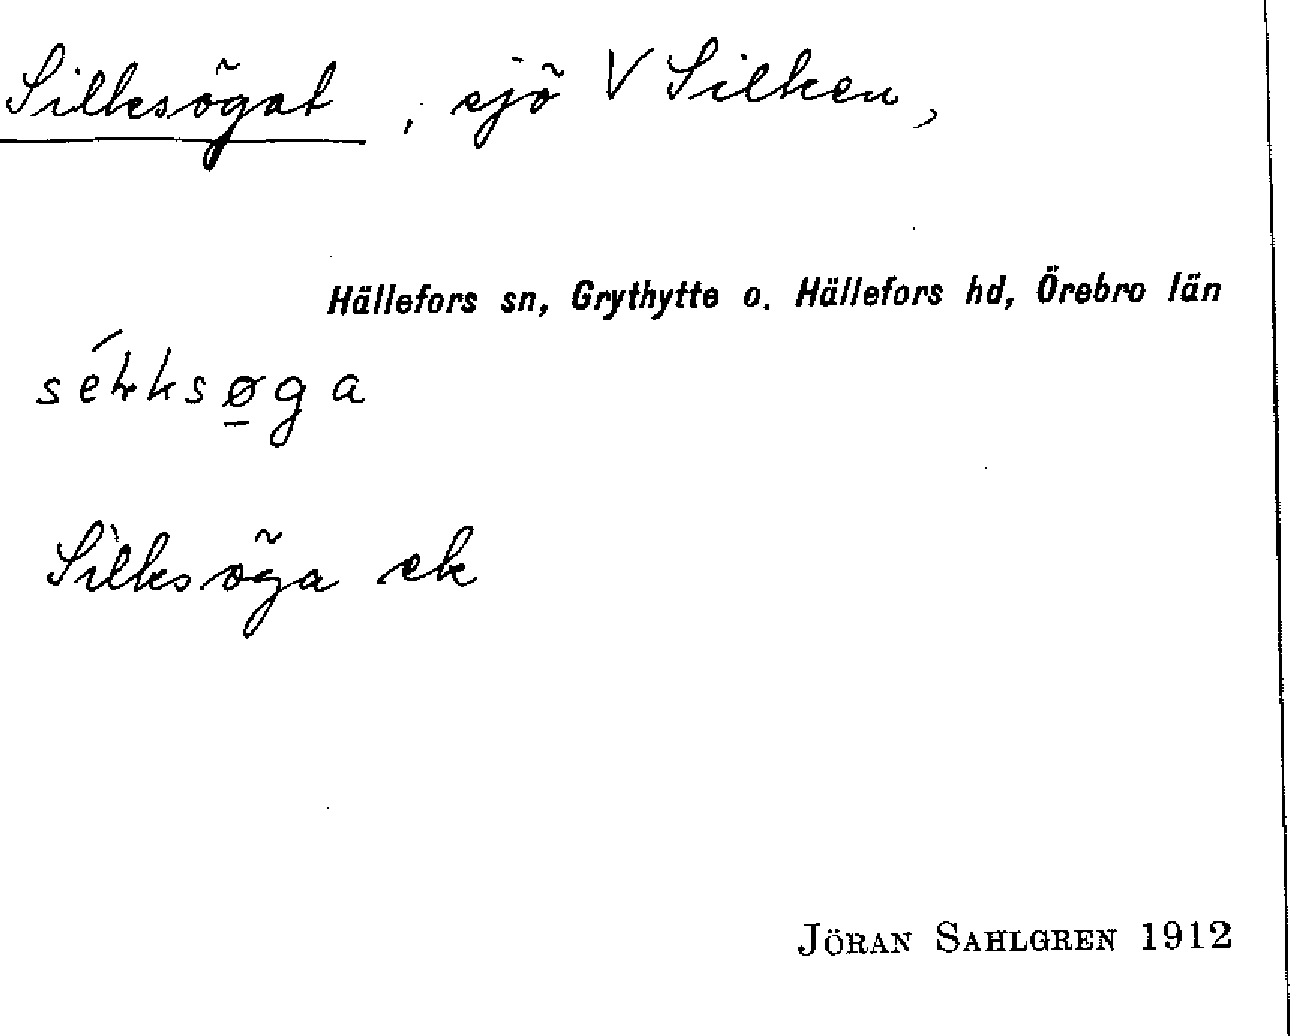 Silksögat, sjö V Silken,
Hällefors sn, Grythytte o. Hällefors hd, Örebro län
Silksöga ek
JÖRAN SAHLGREN 1912